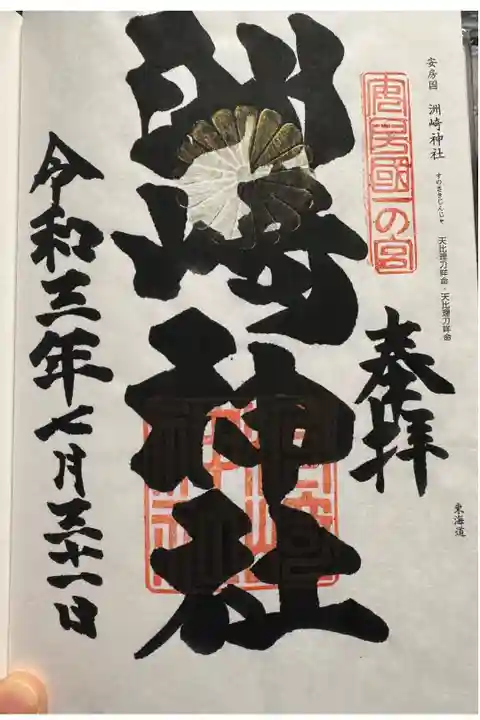 安房国 洲崎神社 すのさきじんじゃ 天比理乃咩命・天比理刀咩命
東海道
安房國一の宮
奉拝
洲崎神社
令和三年七月三十一日